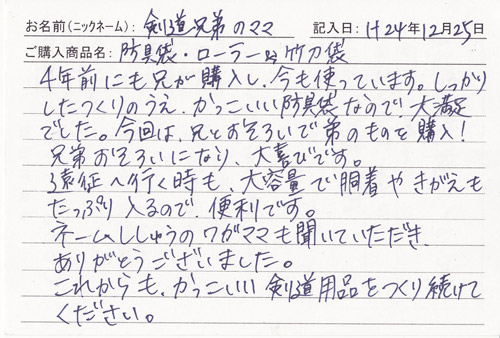 お名前(ニックネーム): 剣道兄弟のママ 記入日: H24年12月25日
ご購入商品名: 防具袋・ローラー&竹刀袋
4年前にも兄が購入し、今も使っています。しっかり
したつくりのうえ、かっこいい防具袋なので、大満足
でした。今回は、兄とおそろいで弟のものを購入!
兄弟おそろいになり、大喜びです。
遠征へ行く時も、大容量で胴着やきがえも
たっぷり入るので、便利です。
ネームししゅうのワガママも聞いていただき、
ありがとうございました。
これからも、かっこいい剣道用品をつくり続けて
ください。